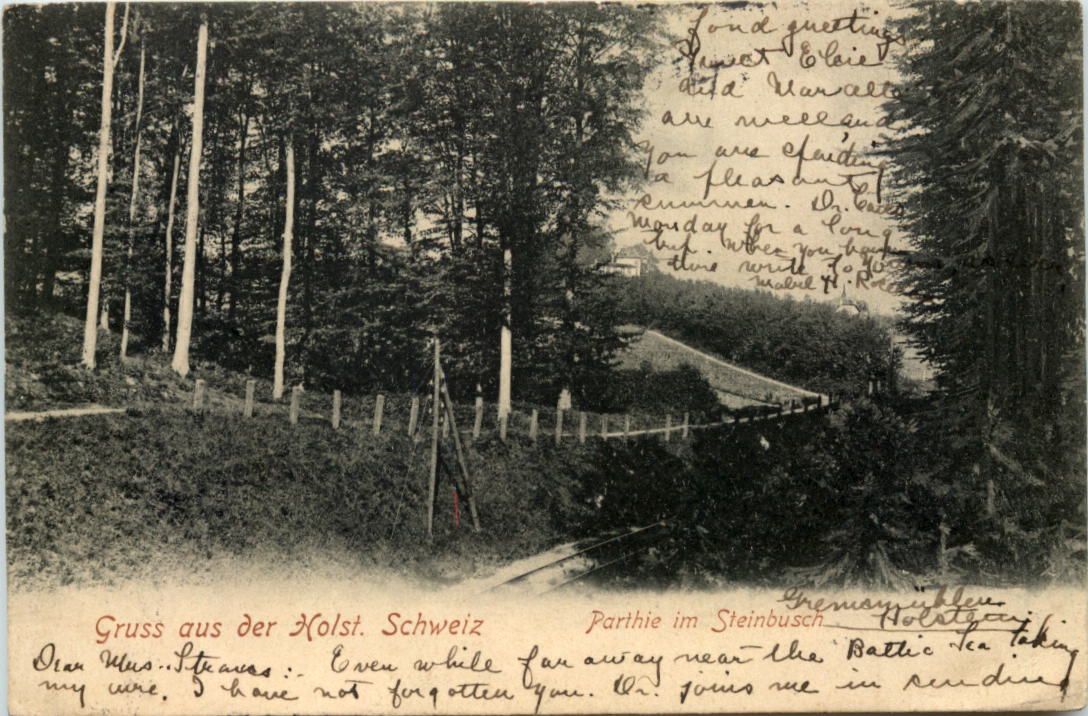 Fond greetings
Sweet Elsie
and
are well and
you are spending
a pleasant
summer. Dr.
Monday for a long
When you have
time write to
Mabel H.
Gremsmühlen
Holstein
Gruss aus der Holst. Schweiz
Parthie im Steinbusch
Dear Mrs. Straus: Even while far away near the Baltic Sea taking
my cure, I have not forgotten you. Dr. joins me in sending